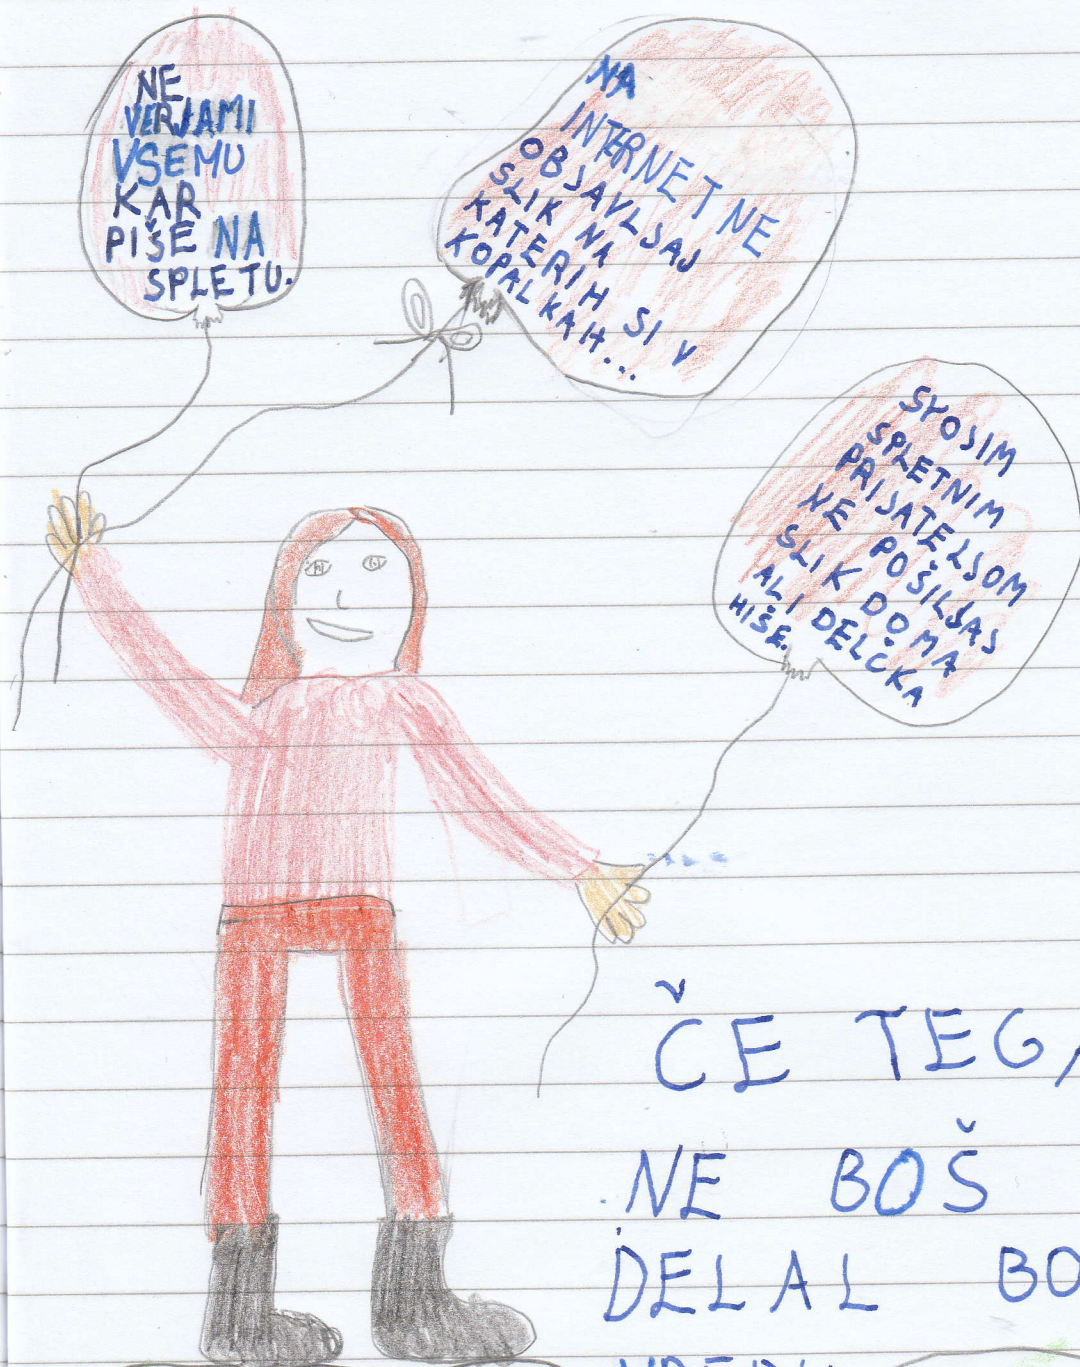 NE
VERJAMI
VSEMU
KAR
PIŠE NA
SPLETU.
NA
INTERNET NE
OBJAVLJAJ
SLIK NA
KATERIH SI V
KOPALKAH...
SVOJIM
SPLETNIM
PRIJATELJOM
NE POŠILJAJ
SLIK DOMA
ALI DELČKA
HIŠE.
ČE TEGA
NE BOŠ
DELAL BO